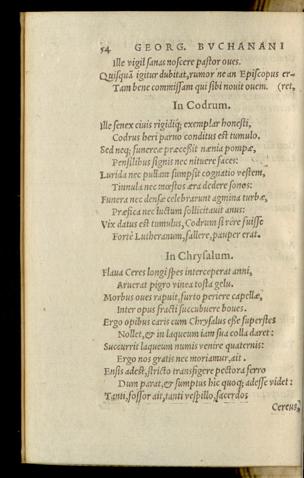 54 GEORG. BVCHANANI
Ille vigil sanas noscere pastor oues.
Quisquã igitur dubitat, rumor ne an Episcopus er-
Tam bene commissam qui sibi nouit ouem. (ret,
In Codrum.
Ille senex ciuis rigidiq; exemplar honesti,
Codrus heri paruo conditus est tumulo.
Sed neq; funereæ præcessit nænia pompæ,
Pensilibus signis nec nituere faces:
Lurida nec pullam sumpsit cognatio vestem,
Tinnula nec mœstos æra dedere sonos:
Funera nec densæ celebrarunt agmina turbæ,
Præfica nec luctum sollicitauit anus:
Vix datus est tumulus, Codrum si rere fuisse
Fortè Lutheranum, fallere, pauper erat.
In Chrysalum.
Flaua Ceres longi spes interceperat anni,
Aruerat pigro vinea tosta gelu.
Morbus oues rapuit, furto periere capellæ,
Inter opus fracti succubuere boues.
Ergo opibus caris cum Chrysalus esse superstes
Nollet, & in laqueum iam sua colla daret:
Succurrit laqueum numis venire quaternis:
Ergo nos gratis nec moriamur, ait.
Ensis adest, stricto transfigere pectora ferro
Dum parat, & sumptus hic quoq; adesse videt:
Tanti, fossor ait, tanti vespillo, sacerdos
Cereus,